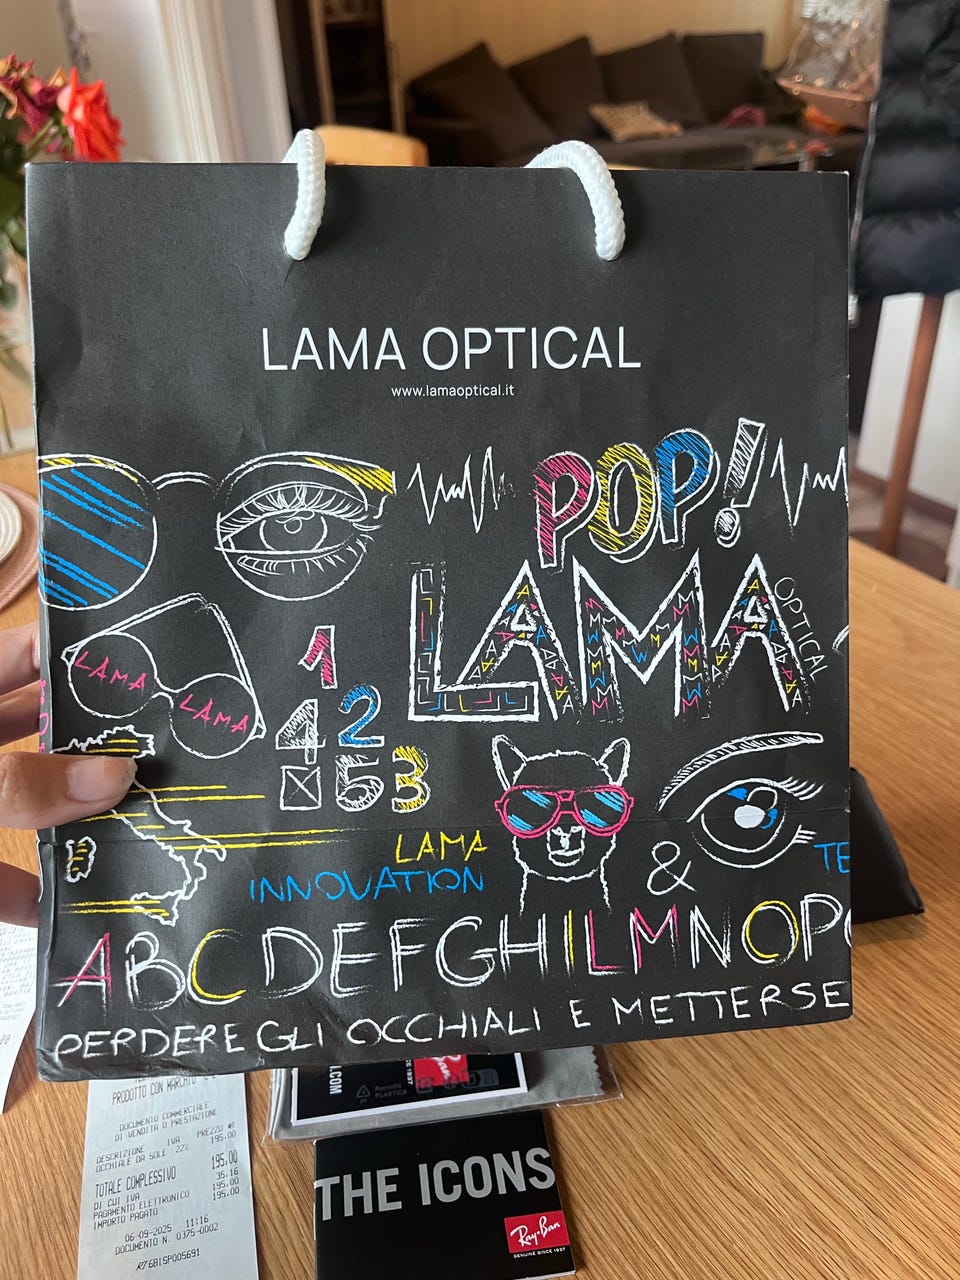 LAMA OPTICAL
www.lamaoptical.it
POP!
LAMA
OPTICAL
LAMA LAMA
1
4 2
5 3
LAMA
INNOVATION
&
TE
ABCDEFGHILMNOPQ
PERDERE GLI OCCHIALI E METTERSE
PRODOTTO CON MARCHIO
DOCUMENTO COMMERCIALE
DI VENDITA O PRESTAZIONE
DESCRIZIONE IVA PREZZO €
OCCHIALE DA SOLE 22% 195,00
TOTALE COMPLESSIVO 195,00
DI CUI IVA 35,16
PAGAMENTO ELETTRONICO 195,00
IMPORTO PAGATO 195,00
06-09-2025 11:16
DOCUMENTO N. 0375-0002
.COM
Raccolta
PLASTICA
1937
Ray-Ban
THE ICONS
Ray-Ban
GENUINE SINCE 1937